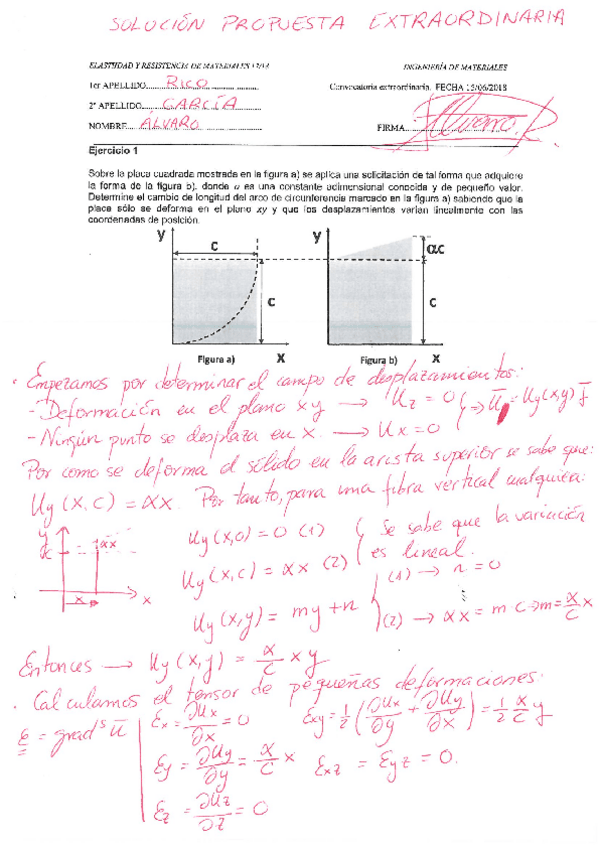 SOLUCIÓN PROPUESTA EXTRAORDINARIA
ELASTICIDAD Y RESISTENCIA DE MATERIALES 17/18 INGENIERÍA DE MATERIALES
1er APELLIDO RICO Convocatoria extraordinaria. FECHA 15/06/2018
2º APELLIDO GARCÍA
NOMBRE ÁLVARO FIRMA
Ejercicio 1
Sobre la placa cuadrada mostrada en la figura a) se aplica una solicitación de tal forma que adquiere
la forma de la figura b), donde α es una constante adimensional conocida y de pequeño valor.
Determine el cambio de longitud del arco de circunferencia marcado en la figura a) sabiendo que la
placa sólo se deforma en el plano xy y que los desplazamientos varían linealmente con las
coordenadas de posición.
y c c x
Figura a)
y αc c x
Figura b)
· Empezamos por determinar el campo de desplazamientos:
- Deformación en el plano xy → Uz = 0
- Ningún punto se desplaza en x. → Ux = 0 } ⇒ U̅ = Uy(x,y) j̅
Por como se deforma el sólido en la arista superior se sabe que:
Uy(x,c) = αx. Por tanto, para una fibra vertical cualquiera:
y αc αx x x
Uy(x,0) = 0 (1)
Uy(x,c) = αx (2)
Se sabe que la variación
es lineal.
Uy(x,y) = my+n
(1) → n = 0
(2) → αx = m c → m = α/c x
Entonces → Uy(x,y) = α/c xy
· Calculamos el tensor de pequeñas deformaciones:
ε = gradˢ u̅
εx = ∂Ux/∂x = 0 εxy = 1/2 (∂Ux/∂y + ∂Uy/∂x) = 1/2 α/c y
εy = ∂Uy/∂y = α/c x εxz = εyz = 0.
εz = ∂Uz/∂z = 0